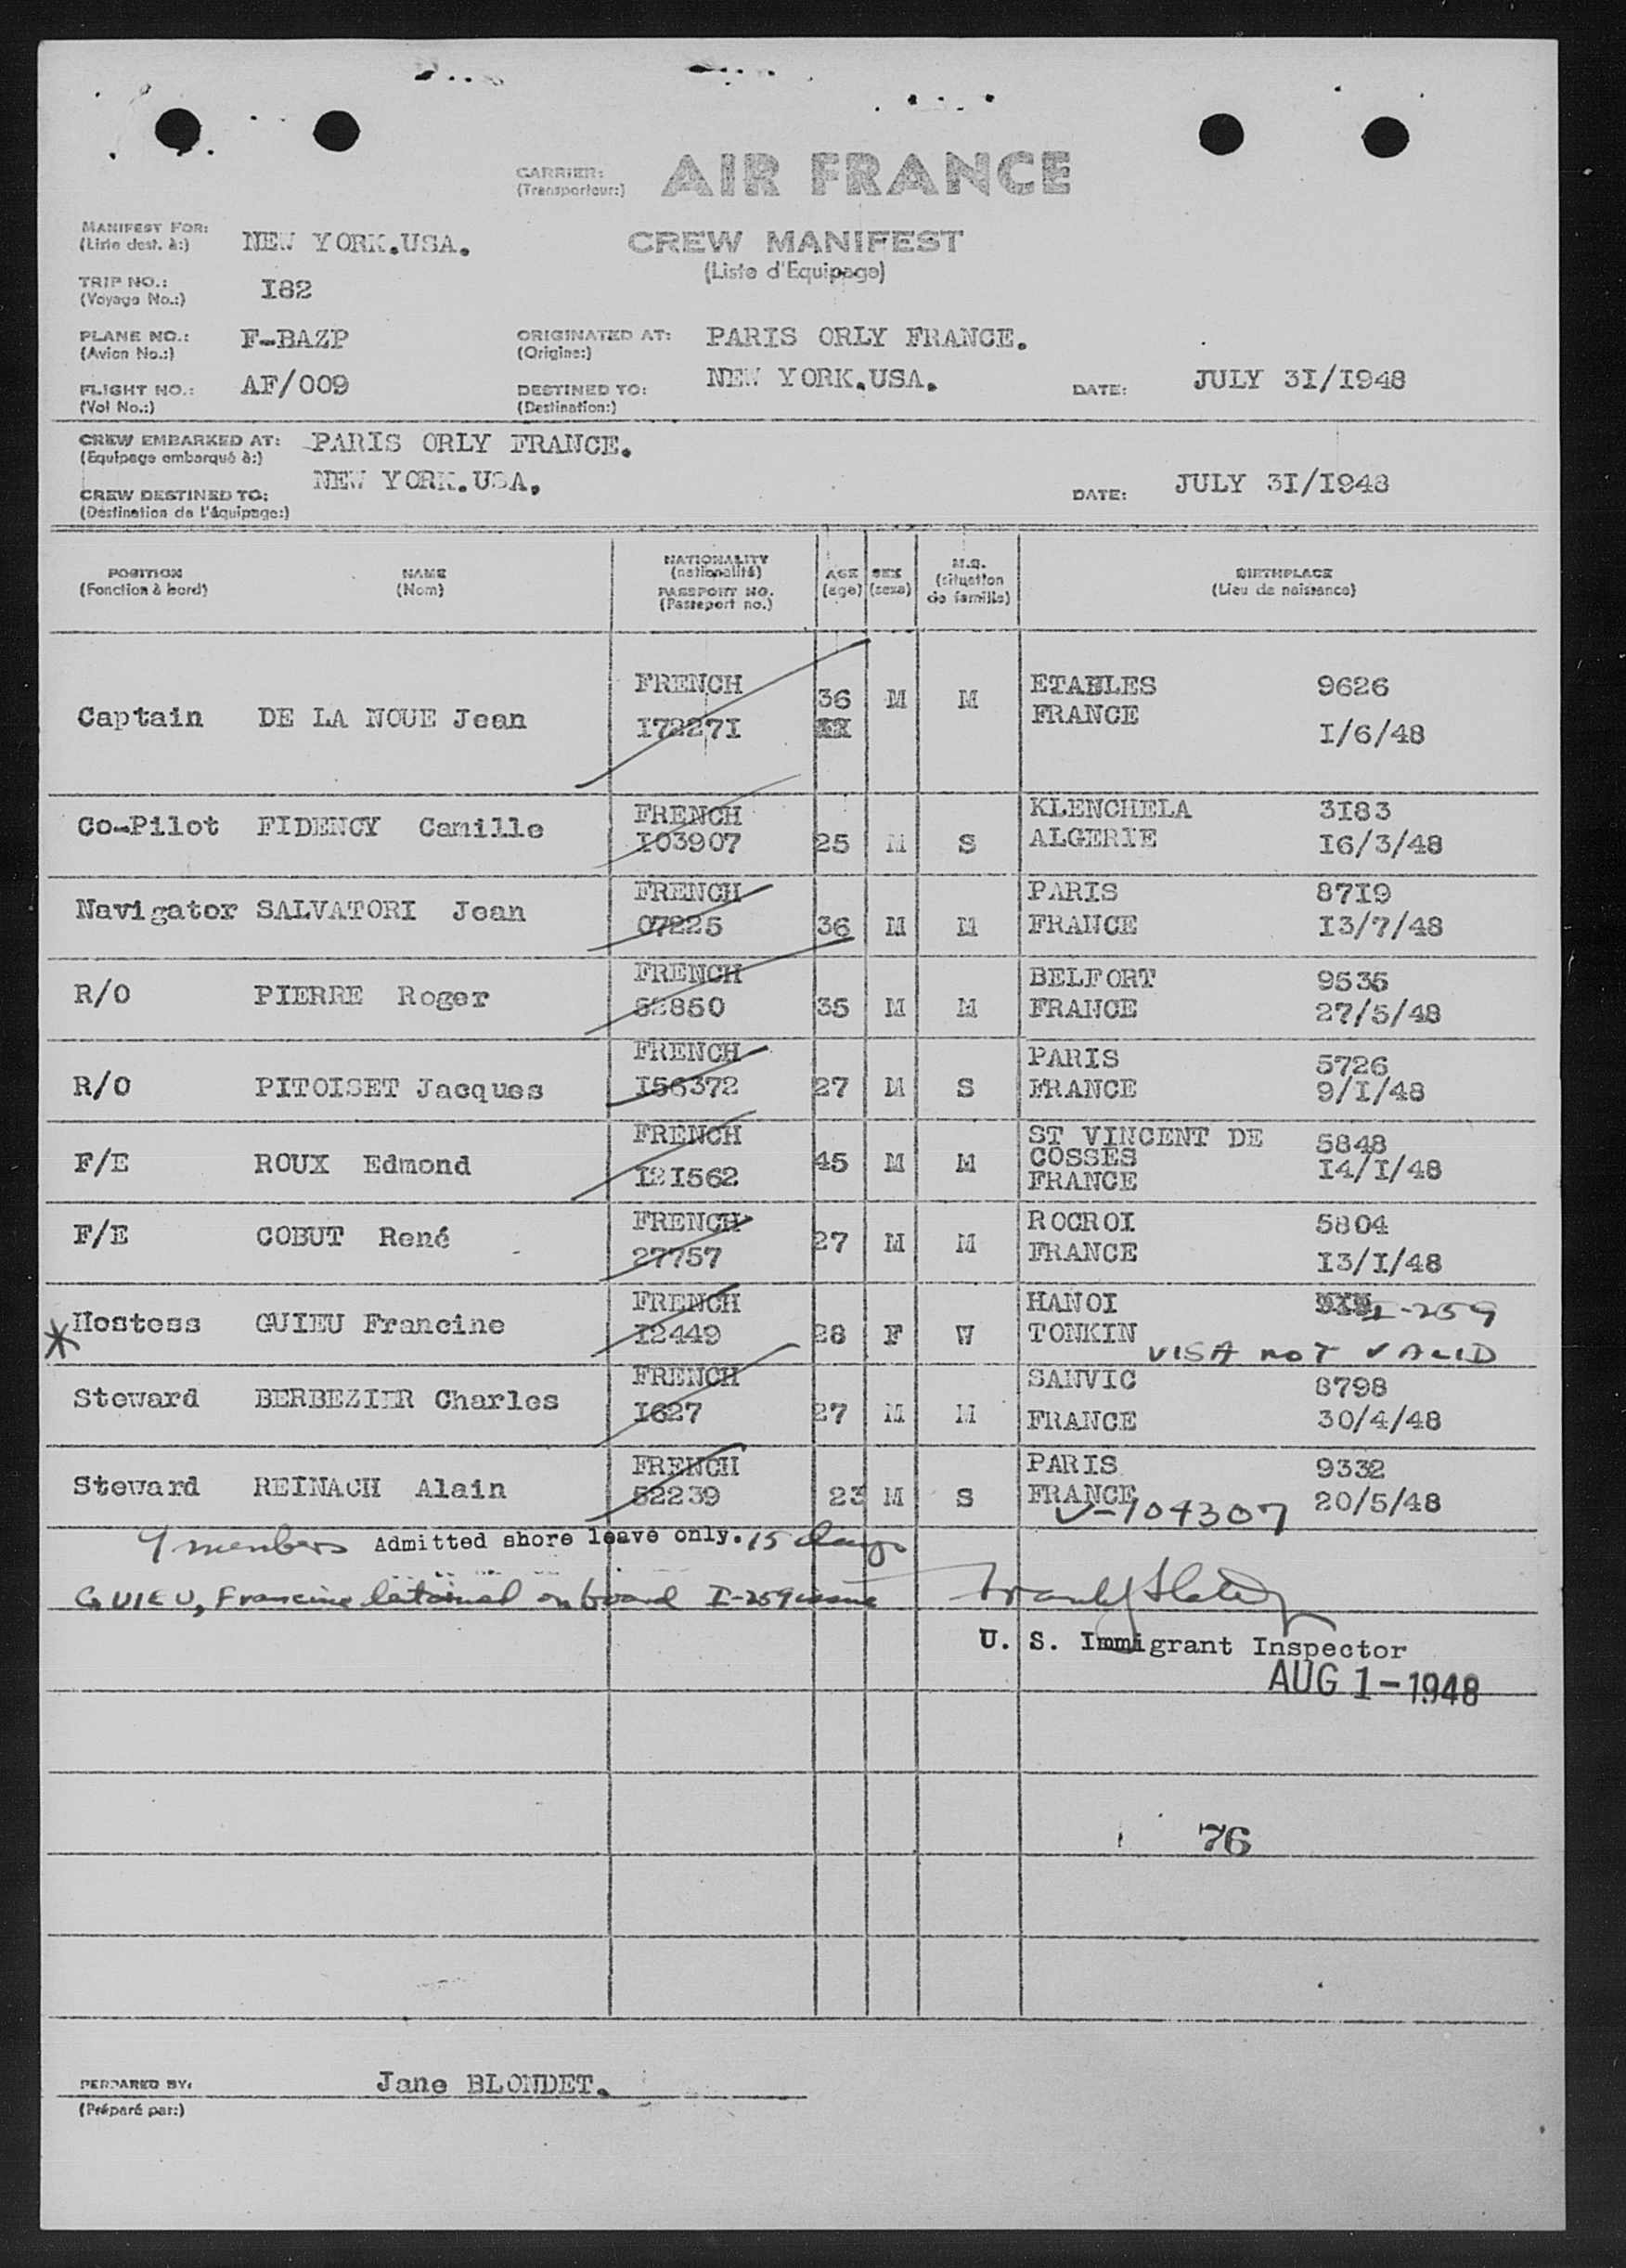 CARRIER: AIR FRANCE
(Transporteur:)
MANIFEST FOR: NEW YORK.USA.
(Liste dest. à:)
CREW MANIFEST
(Liste d'Equipage)
TRIP NO.: I82
(Voyage No.:)
PLANE NO.: F-BAZP
(Avion No.:)
ORIGINATED AT: PARIS ORLY FRANCE.
(Origine:)
FLIGHT NO.: AF/009
(Vol No.:)
DESTINED TO: NEW YORK.USA.
(Destination:)
DATE: JULY 3I/I948
CREW EMBARKED AT: PARIS ORLY FRANCE.
(Equipage embarqué à:)
CREW DESTINED TO: NEW YORK.USA.
(Destination de l'équipage:)
DATE: JULY 3I/I948
POSITION NAME NATIONALITY AGE SEX M.S. BIRTHPLACE
(Fonction à bord) (Nom) (nationalité) (age) (sexe) (situation de famille) (Lieu de naissance)
PASSPORT NO.
(Passeport no.)
FRENCH ETABLES 9626
Captain DE LA NOUE Jean I7227I 36 M M FRANCE I/6/48
FRENCH KLENCHELA 3I83
Co-Pilot FIDENCY Camille I03907 25 M S ALGERIE I6/3/48
FRENCH PARIS 87I9
Navigator SALVATORI Jean 07225 36 M M FRANCE I3/7/48
FRENCH BELFORT 9535
R/O PIERRE Roger 52850 35 M M FRANCE 27/5/48
FRENCH PARIS 5726
R/O PITOISET Jacques I56372 27 M S FRANCE 9/I/48
FRENCH ST VINCENT DE 5848
F/E ROUX Edmond I2I562 45 M M COSSES I4/I/48
FRANCE
FRENCH ROCROI 5804
F/E COBUT René 27757 27 M M FRANCE I3/I/48
FRENCH HANOI I-259
* Hostess GUIEU Francine I2449 28 F W TONKIN
VISA NOT VALID
FRENCH SANVIC 8798
Steward BERBEZIER Charles I627 27 M M FRANCE 30/4/48
FRENCH PARIS 9332
Steward REINACH Alain 52239 23 M S FRANCE 20/5/48
V-104307
9 members Admitted shore leave only. 15 days
GUIEU, Francine detained on board I-259 issue
U. S. Immigrant Inspector
AUG 1-1948
76
PREPARED BY: Jane BLONDET.
(Préparé par:)